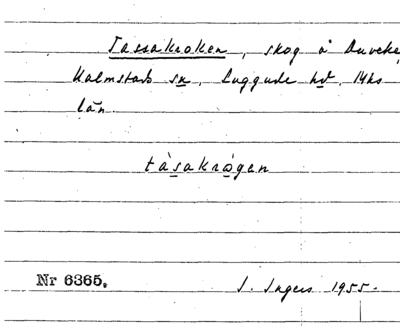 Tassakroken, skog å Duveke,
Halmstads sn, Luggude hd, Mhs
län.
tàsakrågen
Nr 6365. J. Ingers 1955.